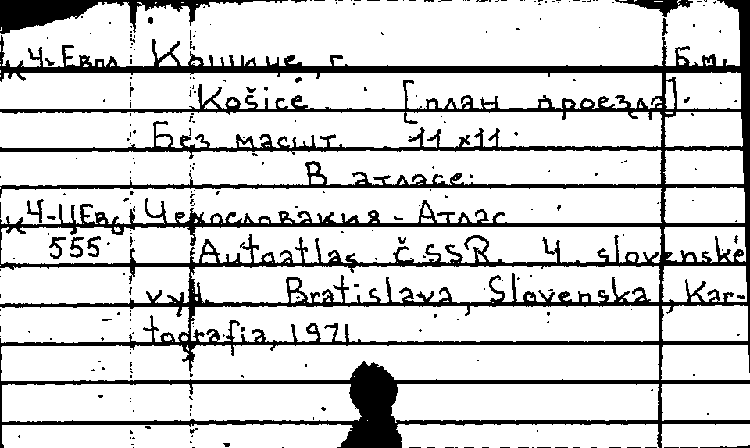 К 4-Евпл Кошице, г. Б.м.
Košice [план проезда].
Без масшт. 11 x 11.
В атласе:
К 4-ЦЕв6 Чехословакия - Атлас
555 Autoatlas ČSSR. 4. slovenské
vyd. Bratislava, Slovenska, Kar-
tografia, 1971.